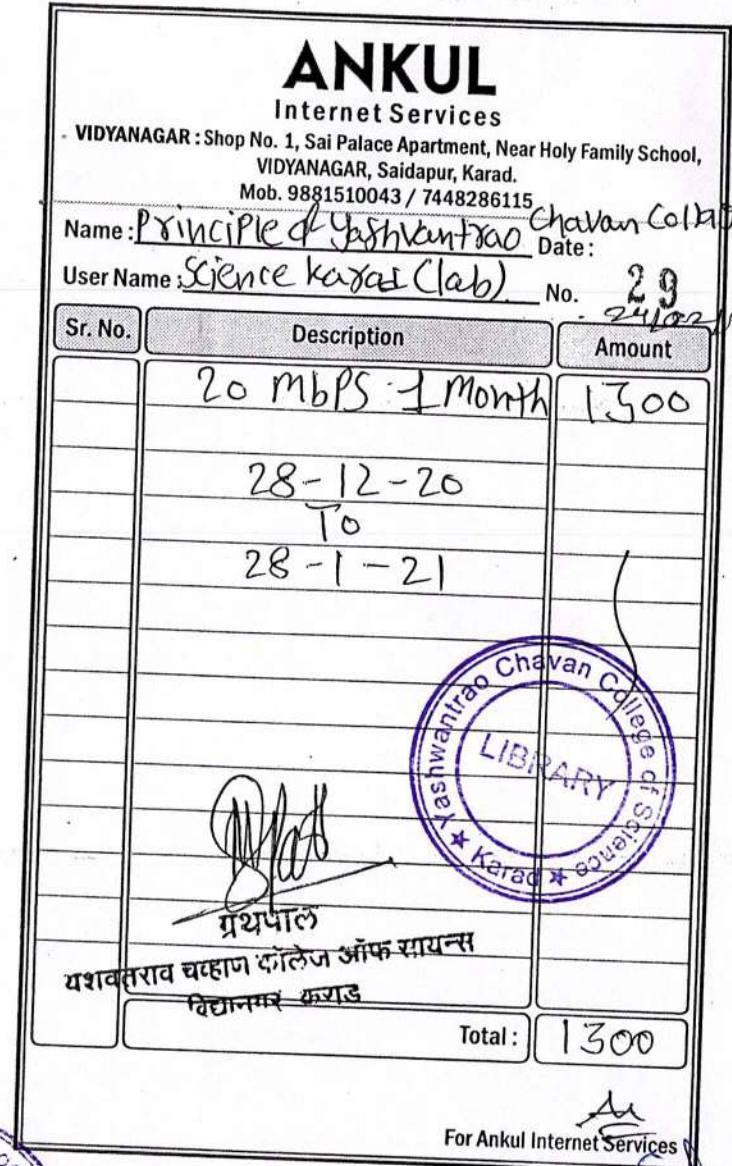 ANKUL
Internet Services
VIDYANAGAR : Shop No. 1, Sai Palace Apartment, Near Holy Family School,
VIDYANAGAR, Saidapur, Karad.
Mob. 9881510043 / 7448286115
Name : Principle of Yashvantrao Chavan
Date :
User Name : Science Karad (lab) No. 29
Sr. No. Description Amount
20 MbPS 1 Month 1300
28-12-20
To
28-1-21
Yashwantrao Chavan College of Science
Karad
LIBRARY
ग्रंथपाल
यशवंतराव चव्हाण कॉलेज ऑफ सायन्स
विद्यानगर कराड
Total : 1300
For Ankul Internet Services